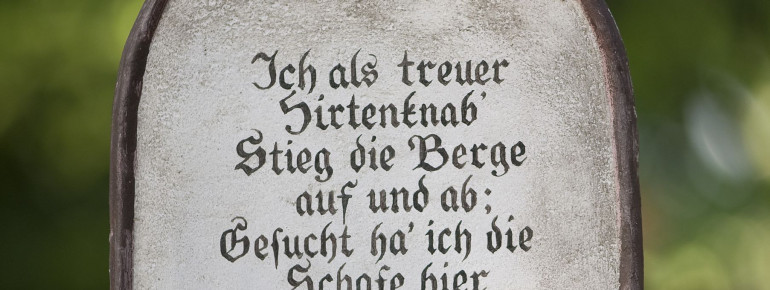 Ich als treuer
Hirtenknab'
Stieg die Berge
auf und ab;
Gesucht ha' ich die
Schafe hier